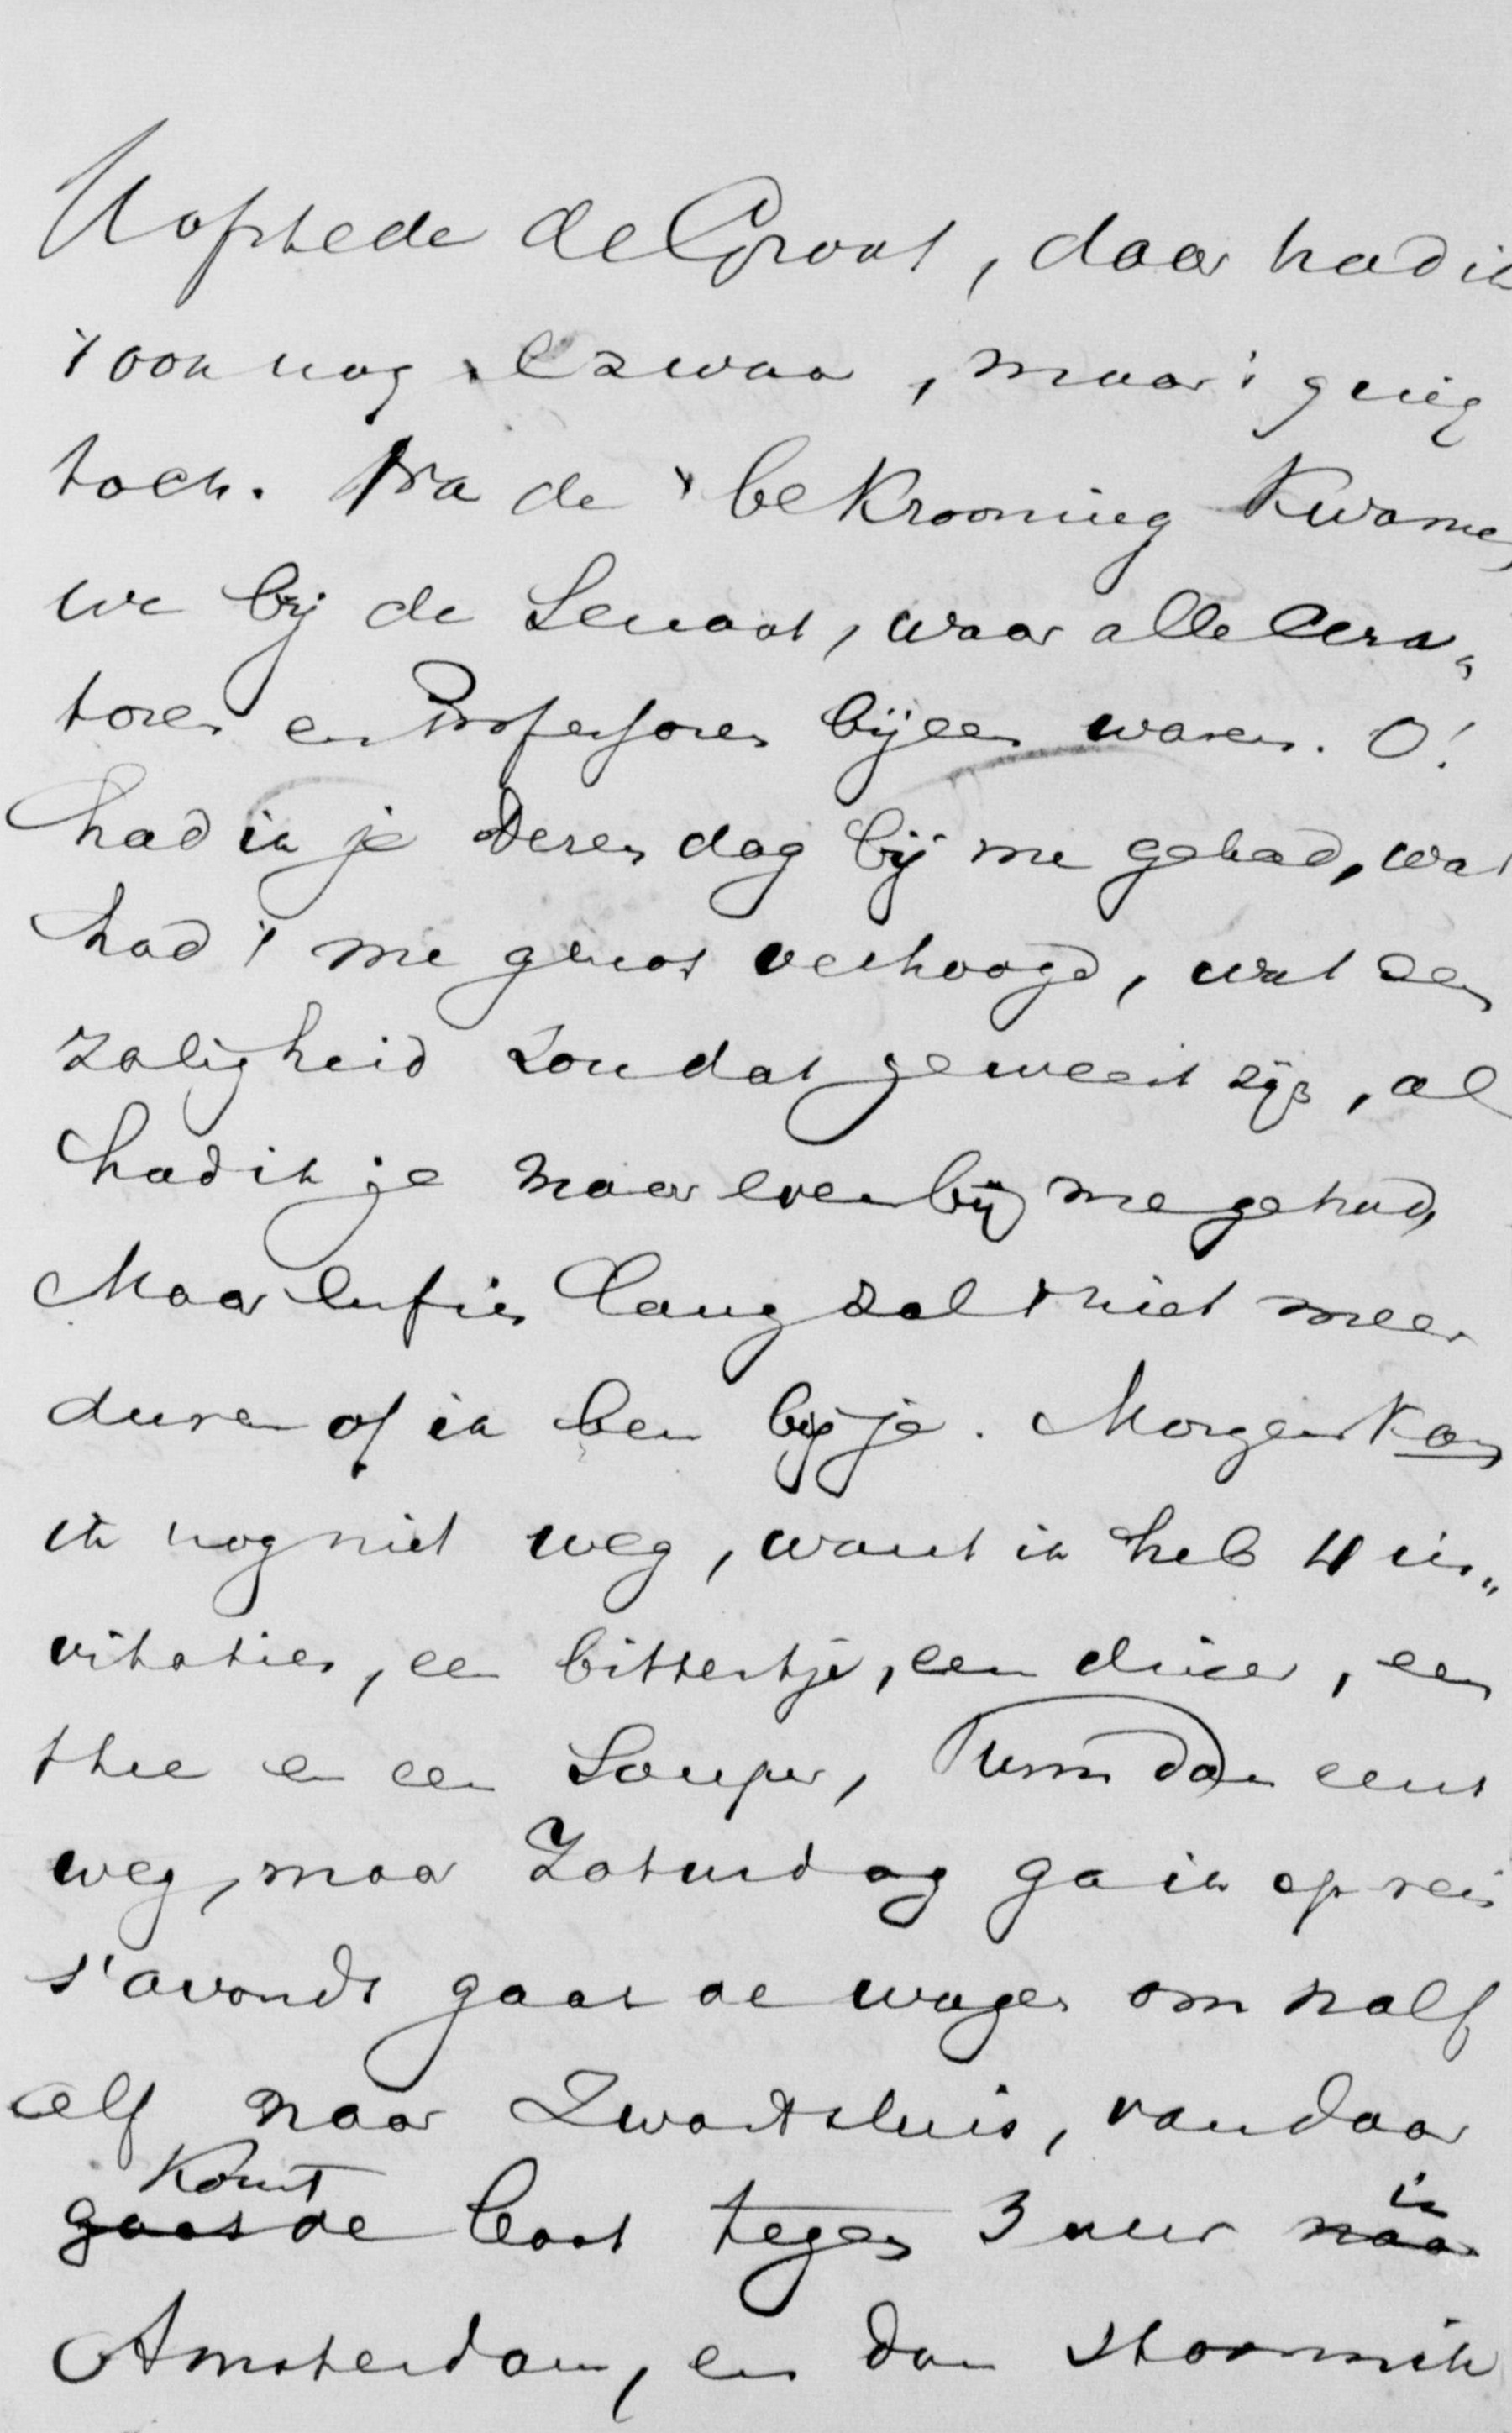 Hofstede de Groot, daar had ik
't ook nog zwaar, maar 't ging
toch. Na de bekrooning kwamen
we bij de Senaat, waar alle Cura„
toren en Professoren bijeen waren. O!
had ik je dezen dag bij me gehad, wat
had 't me genot verhoogd, wat een
zaligheid zou dat geweest zijn, al
had ik je maar even bij me gehad,
Maar enfin lang zal 't niet meer
duren of ik ben bij je. Morgen kan
ik nog niet weg, want ik heb 4 in„
vitaties, een bittertje, een diner, een
thee en een Souper, kom dan eens
weg, maar Zaturdag ga ik op reis
s'avonds gaat de wagen om half
elf naar Zwartsluis, van daar
komt
gaat de boot tegen 3 uur naar in
Amsterdam, en dan stoom ik